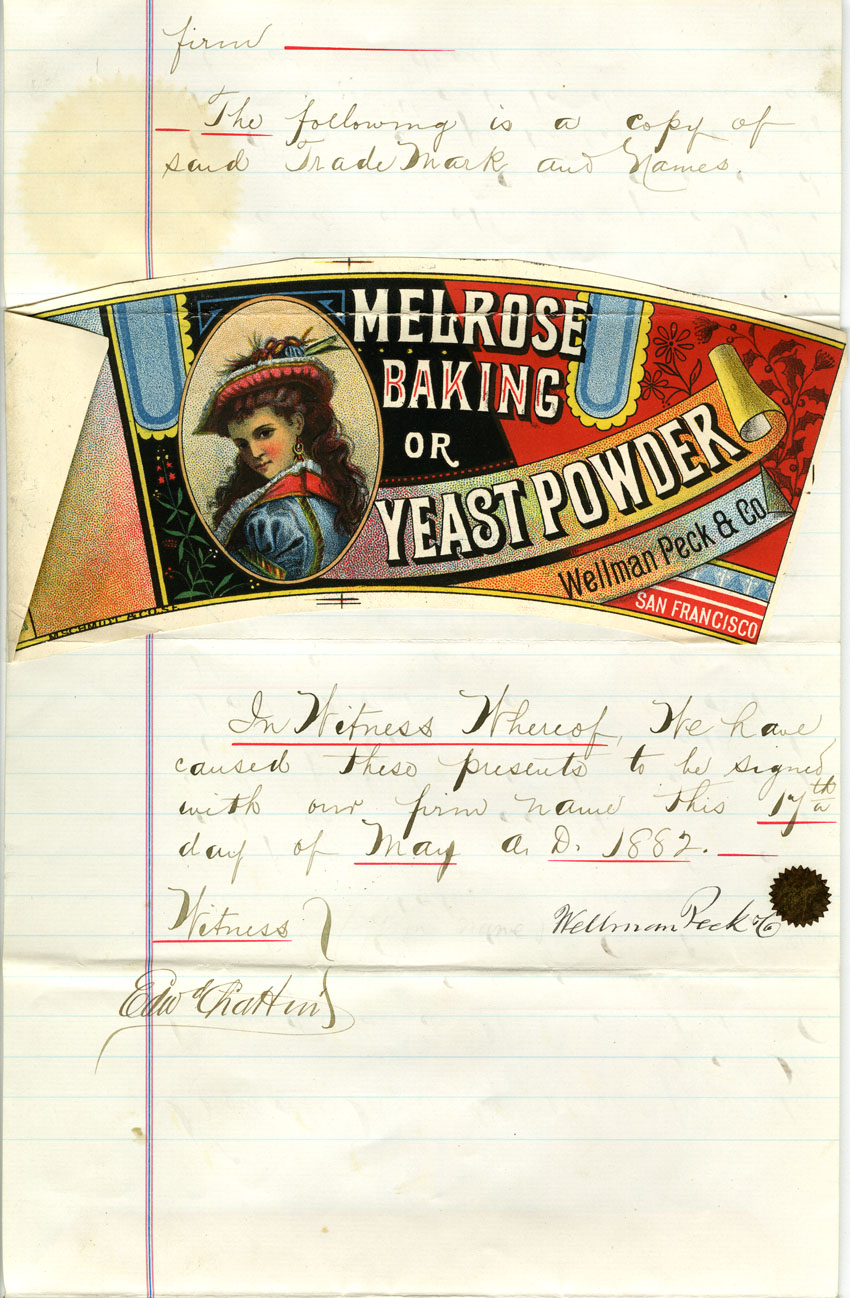 firm
The following is a copy of
said Trade Mark and Names.
MELROSE
BAKING
OR
YEAST POWDER
Wellman Peck & Co
SAN FRANCISCO
In Witness Whereof, We have
caused these presents to be signed
with our firm name this 17th
day of May A. D. 1882.
Witness
Wellman Peck & Co
Edwd Chattin